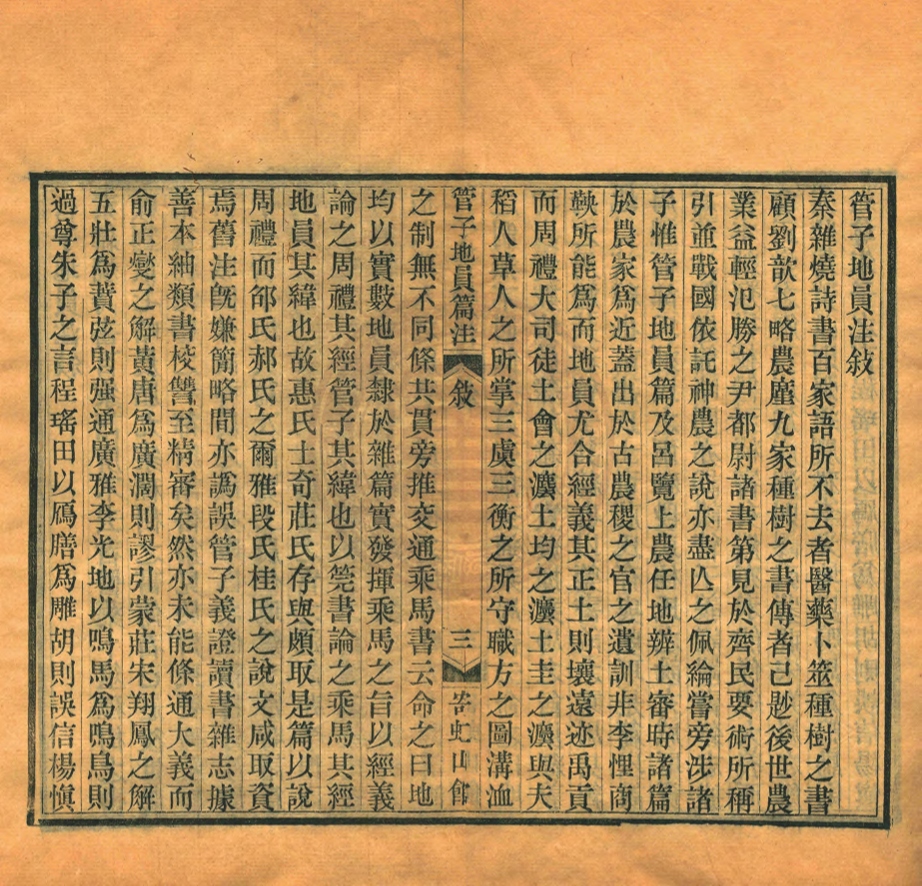 管子地員注敍
秦雜燒詩書百家語所不去者醫藥卜筮種樹之書
顧劉歆七略農廑九家種樹之書傳者已尟後世農
業益輕氾勝之尹都尉諸書第見於齊民要術所稱
引並戰國依託神農之說亦盡亾之佩綸嘗旁涉諸
子惟管子地員篇及呂覽上農任地辨土審時諸篇
於農家爲近蓋出於古農稷之官之遺訓非李悝商
鞅所能爲而地員尤合經義其正土則壤遠迹禹貢
而周禮大司徒土會之灋土均之灋土圭之灋與夫
稻人草人之所掌三虞三衡之所守職方之圖溝洫
管子地員篇注
敍
三
之制無不同條共貫旁推交通乘馬書云命之曰地
均以實數地員隸於雜篇實發揮乘馬之旨以經義
論之周禮其經管子其緯也以筦書論之乘馬其經
地員其緯也故惠氏士奇莊氏存與頗取是篇以說
周禮而邵氏郝氏之爾雅段氏桂氏之說文咸取資
焉舊注旣嫌簡略間亦譌誤管子義證讀書雜志據
善本紬類書校讐至精審矣然亦未能條通大義而
俞正燮之解黃唐爲廣濶則謬引蒙莊宋翔鳳之解
五壯爲蕡弦則强通廣雅李光地以鳴馬爲鳴鳥則
過尊朱子之言程瑤田以鴈膳爲雕胡則誤信楊愼